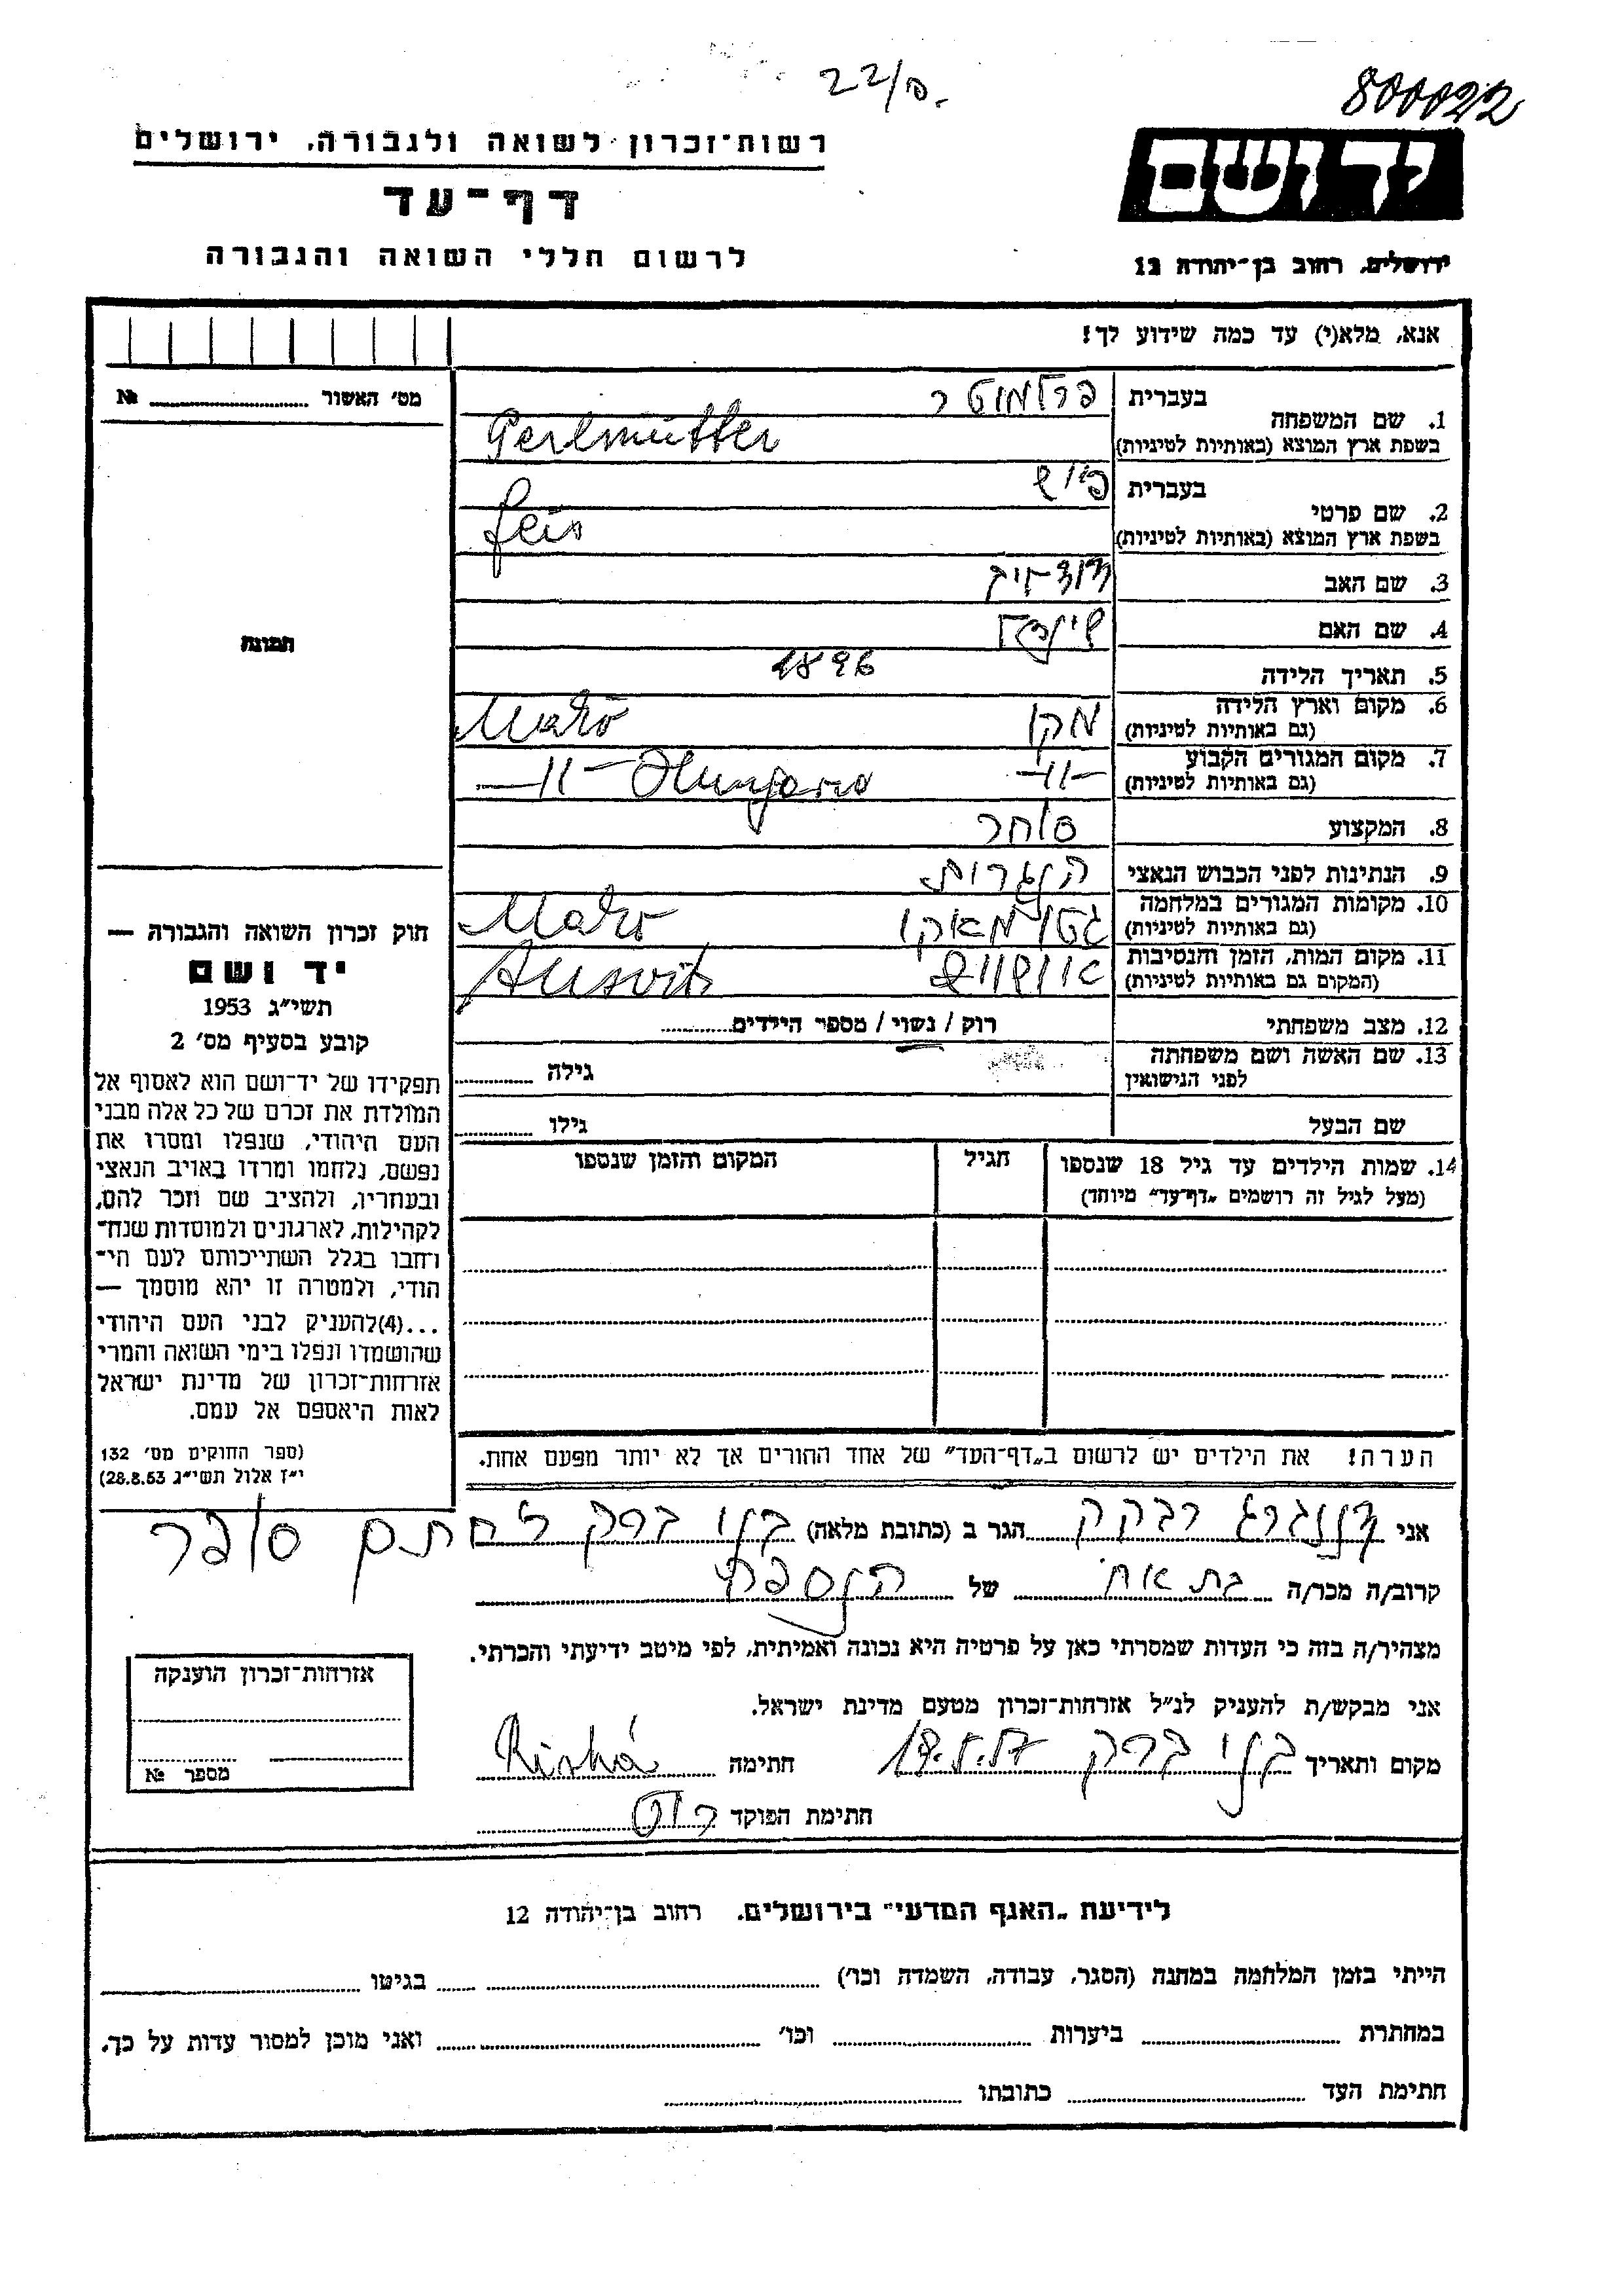 22/פ.
800022
רשות־זכרון לשואה ולגבורה, ירושלים
יד ושם
דף־עד
לרשום חללי השואה והגבורה
ירושלים, רחוב בן־יהודה 12
אנא, מלא(י) עד כמה שידוע לך!
מס׳ האשור №
1. שם המשפחה
בעברית פרלמוטר
בשפת ארץ המוצא (באותיות לטיניות) Perlmütter
2. שם פרטי
בעברית פייש
בשפת ארץ המוצא (באותיות לטיניות) feis
3. שם האב
4. שם האם
5. תאריך הלידה 1896
6. מקום וארץ הלידה
(גם באותיות לטיניות) מקו Makó
7. מקום המגורים הקבוע
(גם באותיות לטיניות) -״- -״-
8. המקצוע סוחר
9. הנתינות לפני הכבוש הנאצי הונגרית
10. מקומות המגורים במלחמה
(גם באותיות לטיניות) גטו מאקו Makó
11. מקום המות, הזמן והנסיבות
(המקום גם באותיות לטיניות) אוושוויץ Ausvits
12. מצב משפחתי רוק / נשוי / מספר הילדים
13. שם האשה ושם משפחתה
לפני הנישואין גילה
שם הבעל גילו
14. שמות הילדים עד גיל 18 שנספו הגיל המקום והזמן שנספו
(מעל לגיל זה רושמים „דף־עד״ מיוחד)
הערה! את הילדים יש לרשום ב„דף־העד״ של אחד ההורים אך לא יותר מפעם אחת.
תמונה
חוק זכרון השואה והגבורה —
יד ושם
תשי״ג 1953
קובע בסעיף מס׳ 2
תפקידו של יד־ושם הוא לאסוף אל
המולדת את זכרם של כל אלה מבני
העם היהודי, שנפלו ומסרו את
נפשם, נלחמו ומרדו באויב הנאצי
ובעוזריו, ולהציב שם וזכר להם,
לקהילות, לארגונים ולמוסדות שנח־
רחבו בגלל השתייכותם לעם הי־
הודי, ולמטרה זו יהא מוסמך —
...(4)להעניק לבני העם היהודי
שהושמדו ונפלו בימי השואה והמרי
אזרחות־זכרון של מדינת ישראל
לאות היאספם אל עמם.
(ספר החוקים מס׳ 132
י״ז אלול תשי״ג 28.8.53)
אני רבקה הגר ב (כתובת מלאה) בני ברק חתם סופר
קרוב/ה מכר/ה בת אח של הנספה
מצהיר/ה בזה כי העדות שמסרתי כאן על פרטיה היא נכונה ואמיתית, לפי מיטב ידיעתי והכרתי.
אני מבקש/ת להעניק לנ״ל אזרחות־זכרון מטעם מדינת ישראל.
מקום ותאריך בני ברק חתימה
חתימת הפוקד
אזרחות־זכרון הוענקה
מספר №
לידיעת „האגף המדעי״ בירושלים, רחוב בן־יהודה 12
הייתי בזמן המלחמה במחנה (הסגר, עבודה, השמדה וכו׳) בגיטו
במחתרת ביערות וכו׳ ואני מוכן למסור עדות על כך.
חתימת העד כתובתו